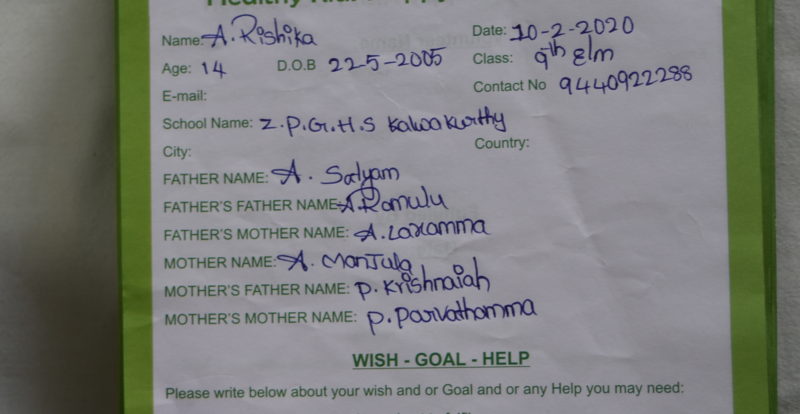 Name: A. Rishika Date: 10-2-2020
Age: 14 D.O.B 22-5-2005 Class: 9th E/m
E-mail: Contact No 9440922288
School Name: Z.P.G.H.S Kalwakurthy
City: Country:
FATHER NAME: A. Satyam
FATHER'S FATHER NAME A. Ramulu
FATHER'S MOTHER NAME: A. Laxamma
MOTHER NAME: A. Manjula
MOTHER'S FATHER NAME: P. Krishnaiah
MOTHER'S MOTHER NAME: P. Parvathamma
WISH - GOAL - HELP
Please write below about your wish and or Goal and or any Help you may need: